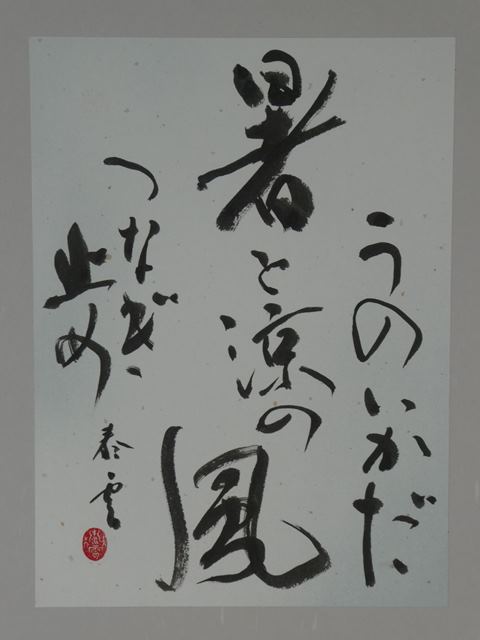 うのいかだ
暑と涼の風
つなぎ
止め
泰雲